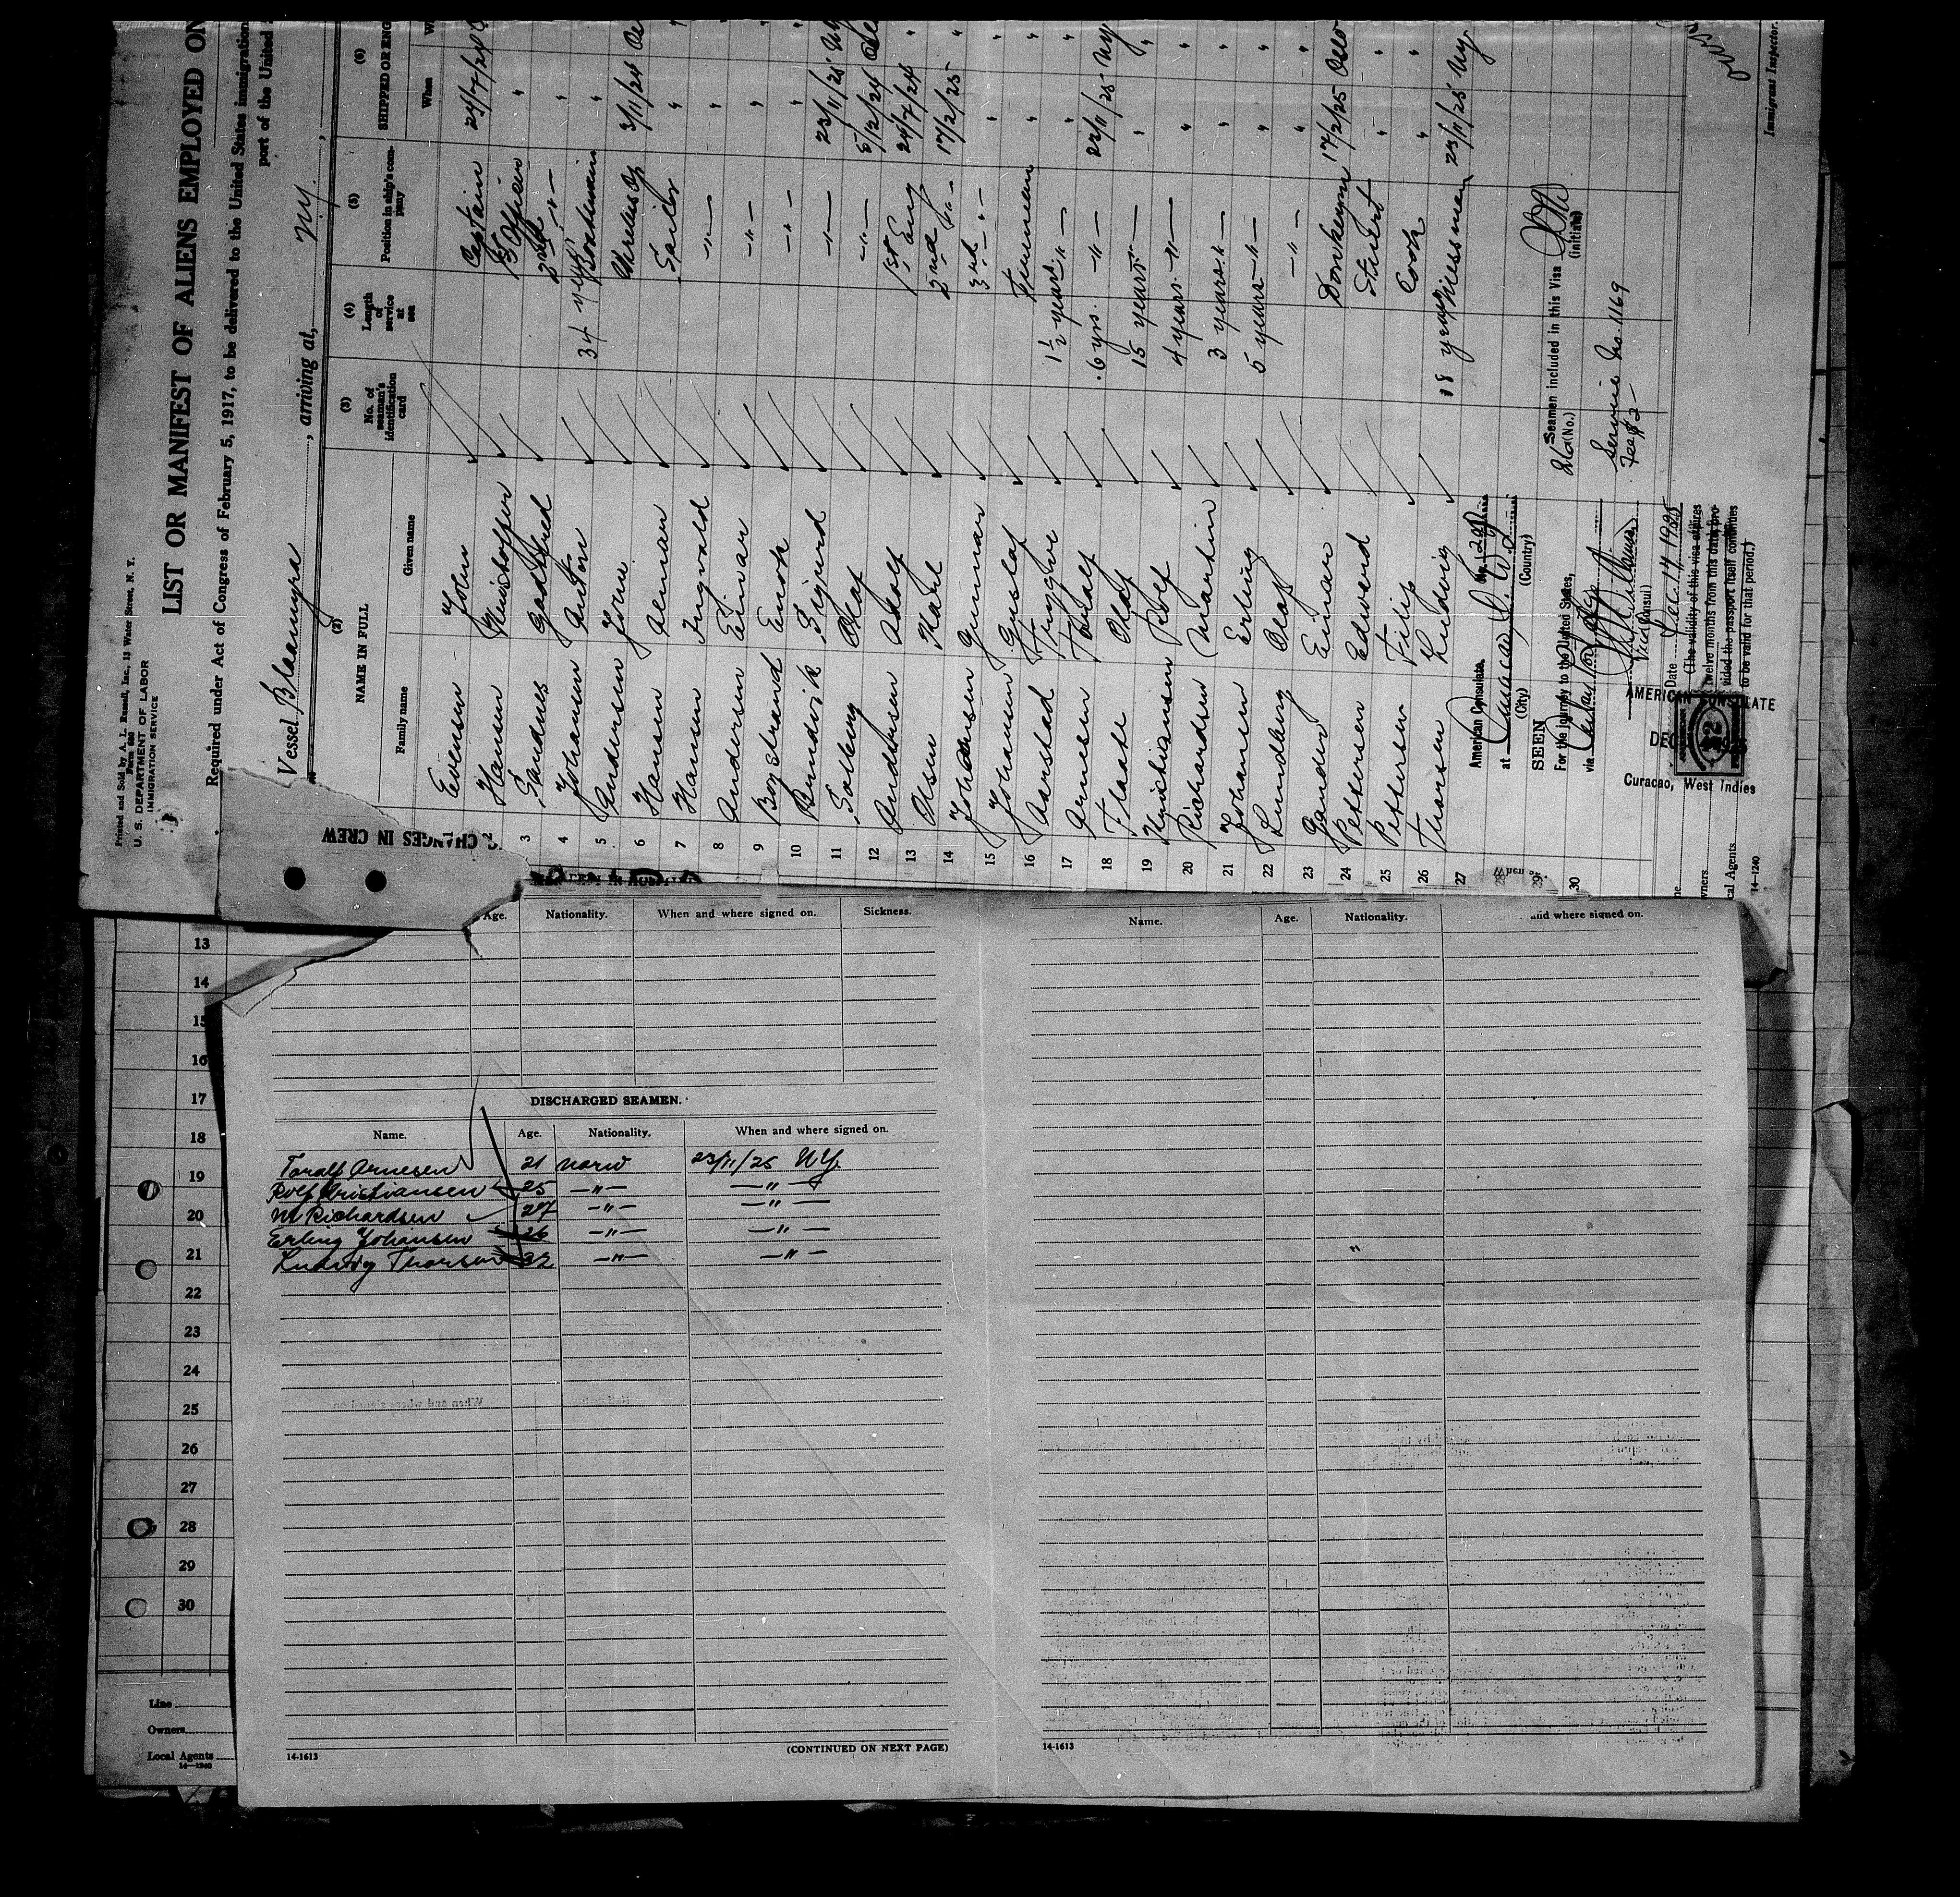 Printed and Sold by A. L. Russell, Inc., 13 Water Street, N. Y.
Form 680
U. S. DEPARTMENT OF LABOR
IMMIGRATION SERVICE
LIST OR MANIFEST OF ALIENS EMPLOYED ON
Required under Act of Congress of February 5, 1917, to be delivered to the United States immigration
port of the United
Vessel , arriving at, NY.
(2) (3) (4) (5) (6)
NAME IN FULL No. of seaman's identification card Length of service at sea Position in ship's company SHIPPED OR ENG
Family name Given name When W
Evensen John Captain 24/7/24
2 Hansen 1st Officer "
3 Sandnes Gottfred 2nd -"-
4 Johansen Anton 34 years Boatsmain "
5 Andersen Jonn 3/11/24
6 Hansen Sailor "
7 Hansen Ingvald -"- "
8 Andersen Einar -"- "
9 Bogstrand Enok -"- "
10 Bendvik Sigurd -"- 23/11/25 NY
11 Solberg Olaf -"- 5/12/24
12 Andersen Adolf 1st Eng 24/7/24
13 Olsen Karl 2nd -"- 17/2/25
14 Johansen Gunnar 3rd -"- "
15 Johansen Gustaf Fireman "
16 Aarstad Trygve 1½ year -"- "
17 Arnesen Toralf 6 yrs. -"- 22/11/25 NY
18 Flaate Olaf 15 years -"- "
19 Kristiansen Rolf 4 years -"- "
20 Richardsen Martin 3 years -"- "
21 Johansen Erling 5 years -"- "
22 Lundberg Olaf -"- "
23 Sander Einar Donkeym 17/2/25 Oslo
24 Pettersen Edvard Stuert "
25 Pettersen Filip Cook "
26 Thorsen Ludvig 18 years Messman 23/11/25 NY
27
28
29
30
American Consulate.
at Curacao D. W. I.
(City) (Country)
SEEN
For the journey to the United States,
via
Vice Consul
Date Dec. 14 1925
(The validity of this visa expires
twelve months from this date, pro-
vided the passport itself continues
to be valid for that period.)
26 Seamen included in this Visa
(No.) (initials)
Service No. 1169
Fee $2-
AMERICAN CONSULATE
DEC
Curacao, West Indies
Immigrant Inspector.
14-1240
CHANGES IN CREW
Age. Nationality. When and where signed on. Sickness.
Name. Age. Nationality. and where signed on.
DISCHARGED SEAMEN.
Name. Age. Nationality. When and where signed on.
Toralf Arnesen 21 Norw 23/11/25 N.Y.
Rolf Kristiansen 25 -"- -"-
M Richardsen 27 -"- -"-
Erling Johansen 26 -"- -"-
Ludvig Thorsen 32 -"- -"-
14-1613 (CONTINUED ON NEXT PAGE)
14-1613
13
14
15
16
17
18
19
20
21
22
23
24
25
26
27
28
29
30
Line
Owners
Local Agents
14-1240